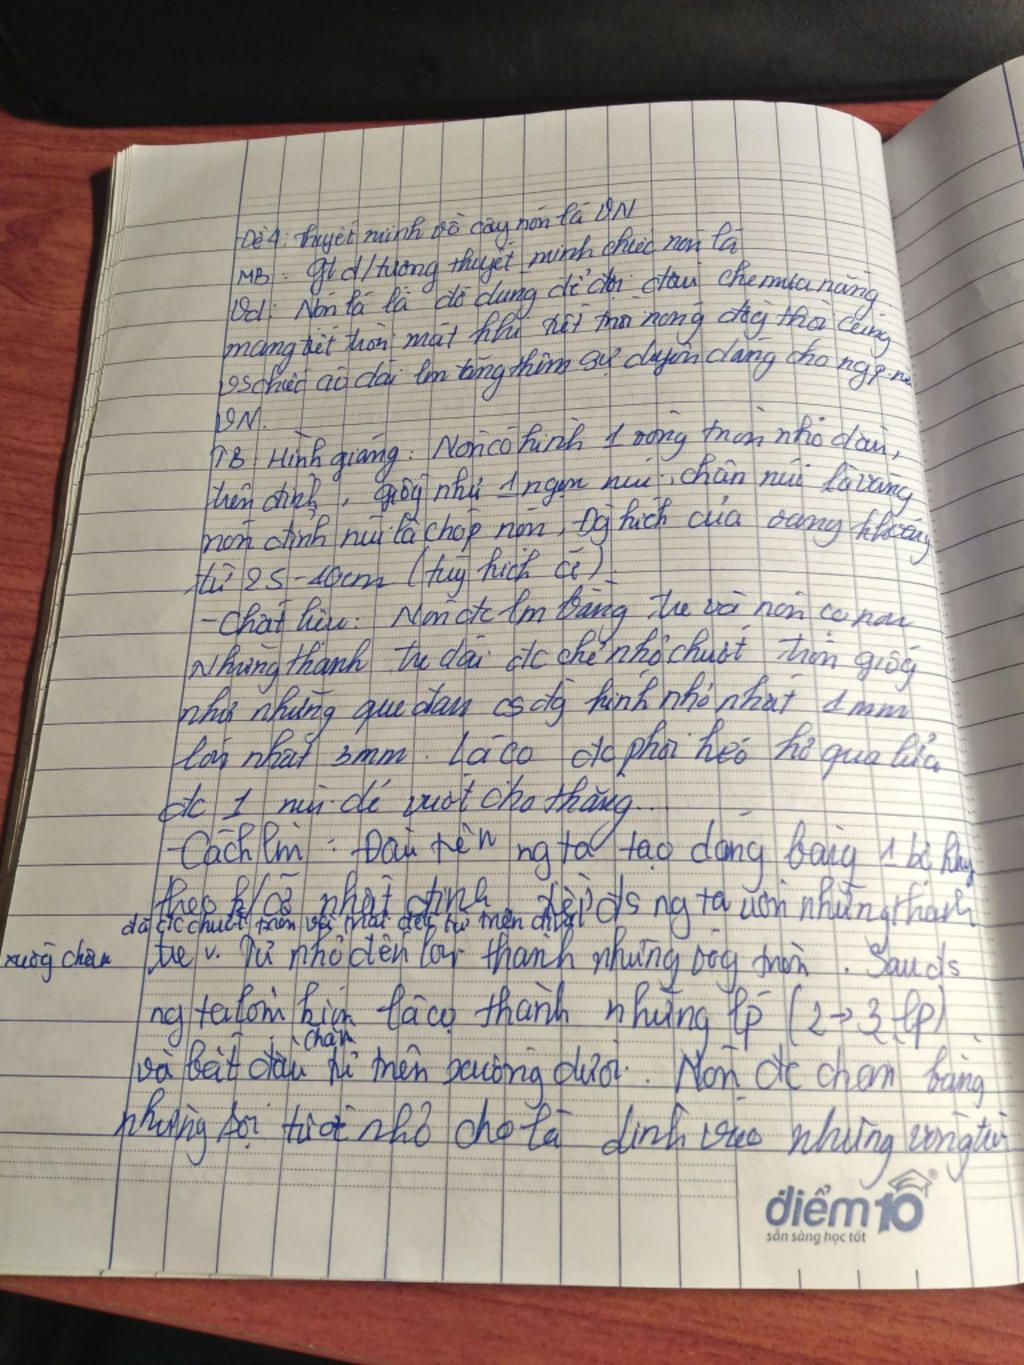 Đề 4: Thuyết minh về cây nón lá VN
MB: gt đ/tượng thuyết minh chiếc nón lá
Vd: Nón lá là đồ dùng để đội đầu che mưa nắng
mang nét thời mát khi tiết trời nóng đồg thời cùng
vs chiếc áo dài lm tăng thêm sự duyên dáng cho ng p.nữ
VN.
TB: Hình giáng: Nón có hình 1 vòng tròn nhỏ dần,
trên đỉnh, giốg như 1 ngọn núi, chân núi là vàng
nón đỉnh núi là chóp nón, Đg kích của vàng khoảng
từ 25-40cm (tuỳ kích cỡ).
-Chất liệu: Nón đc lm bằng tre và nón cọ non
Những thanh tre dài đc chẻ nhỏ chuốt tròn giốg
như những que đan cs đg kính nhỏ nhất 1mm
lớn nhất 3mm. Lá cọ đc phơi héo hơ qua lửa
đc 1 núi để vuốt cho thẳng...
-Cách lm: Đầu tiên ng ta tạo dáng bằng 1 bộ khug
theo k/cỡ nhất định tiếp ds ng ta uốn những thanh
đã đc chuốt tròn và mài đều từ trên đỉnh
xuốg chân tre v. Từ nhỏ đến lớn thành những vòg tròn. Sau ds
ng ta lợm kín lá cọ thành những lp (2→3 lp)
chắn
và bắt đầu từ trên xuống dưới. Nón đc chằn bằng
những sợi tước nhỏ cho lá dính vào những vòng tre
điểm10
sẵn sàng học tốt